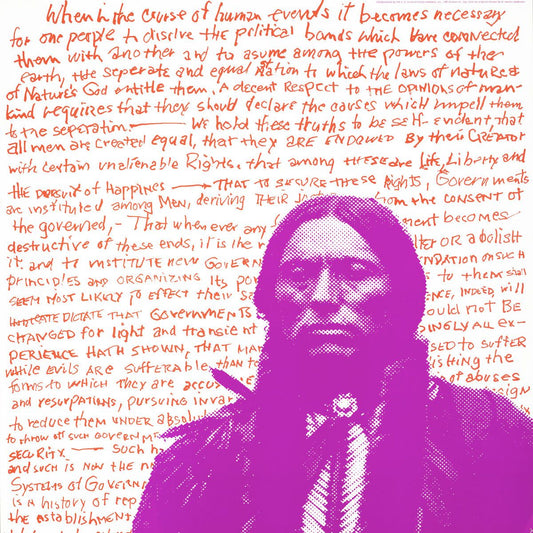 When in the course of human events it becomes necessary
for one people to disolve the political bonds which have connected
them with another and to asume among the powers of the
earth, the seperate and equal station to which the laws of nature &
of Nature's God entitle them, A decent Respect to the opinions of man-
kind requires that they should declare the causes which impell them
to the seperation. — We hold these truths to be self-evident, that
all men are created equal, that they are endowed by their Creator
with certain unalienable Rights. that among these are Life, Liberty and
the pursuit of Happines — That to secure these Rights, Governments
are instituted among Men, deriving their from the consent of
the governed, - That when ever any ment becomes
destructive of these ends, it is the r lter or abolish
it. and to institute new Govern ndation on such
principles and organizing its po to them shall
seem most likely to effect their sa ence, indeed will
dictate that Governments ould not be
changed for light and transient ingly all ex-
perience hath shown, that man sed to suffer
while evils are sufferable, than to lishing the
forms to which they are accus of abuses
and resurpations, pursuing invar sign
to reduce them under absolu
to throw off such governme
security — such ha
and such is now the n
Systems of Governm
is a history of rep
the establishment